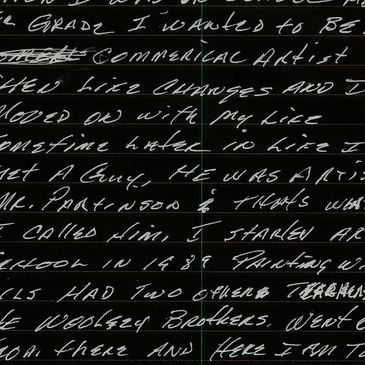 GRADE I WANTED TO BE
COMMERICAL ARTIST
THEN LIFE CHANGES AND I
MOVED ON WITH MY LIFE
SOMETIME LATER IN LIFE I
MET A GUY, HE WAS ARTIS
MR. PARTINSON & THATS WHAT
I CALLED HIM, I STARTED AR
SCHOOL IN 1989 PAINTING W
ILS HAD TWO OTHER
WOOLEZY BROTHERS. WENT O
FROM THERE AND HERE I AM TO